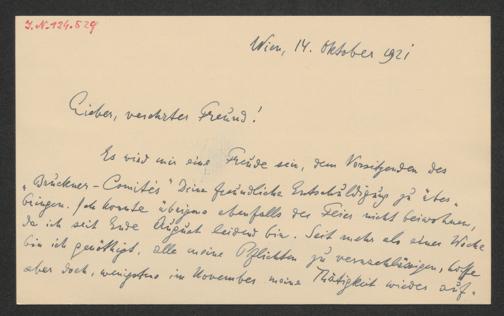 I.N.124.529
Wien, 14. Oktober 1921
Lieber, verehrter Freund!
Es wird mir eine Freude sein, dem Vorsitzenden des
„Bruckner-Comités" Deine freundliche Entschuldigung zu über-
bringen. Ich konnte übrigens ebenfalls der Feier nicht beiwohnen,
da ich seit Ende August leidend bin. Seit mehr als einer Woche
bin ich genötigt, alle meine Pflichten zu vernachlässigen, hoffe
aber doch, wenigstens im November meine Tätigkeit wieder auf-